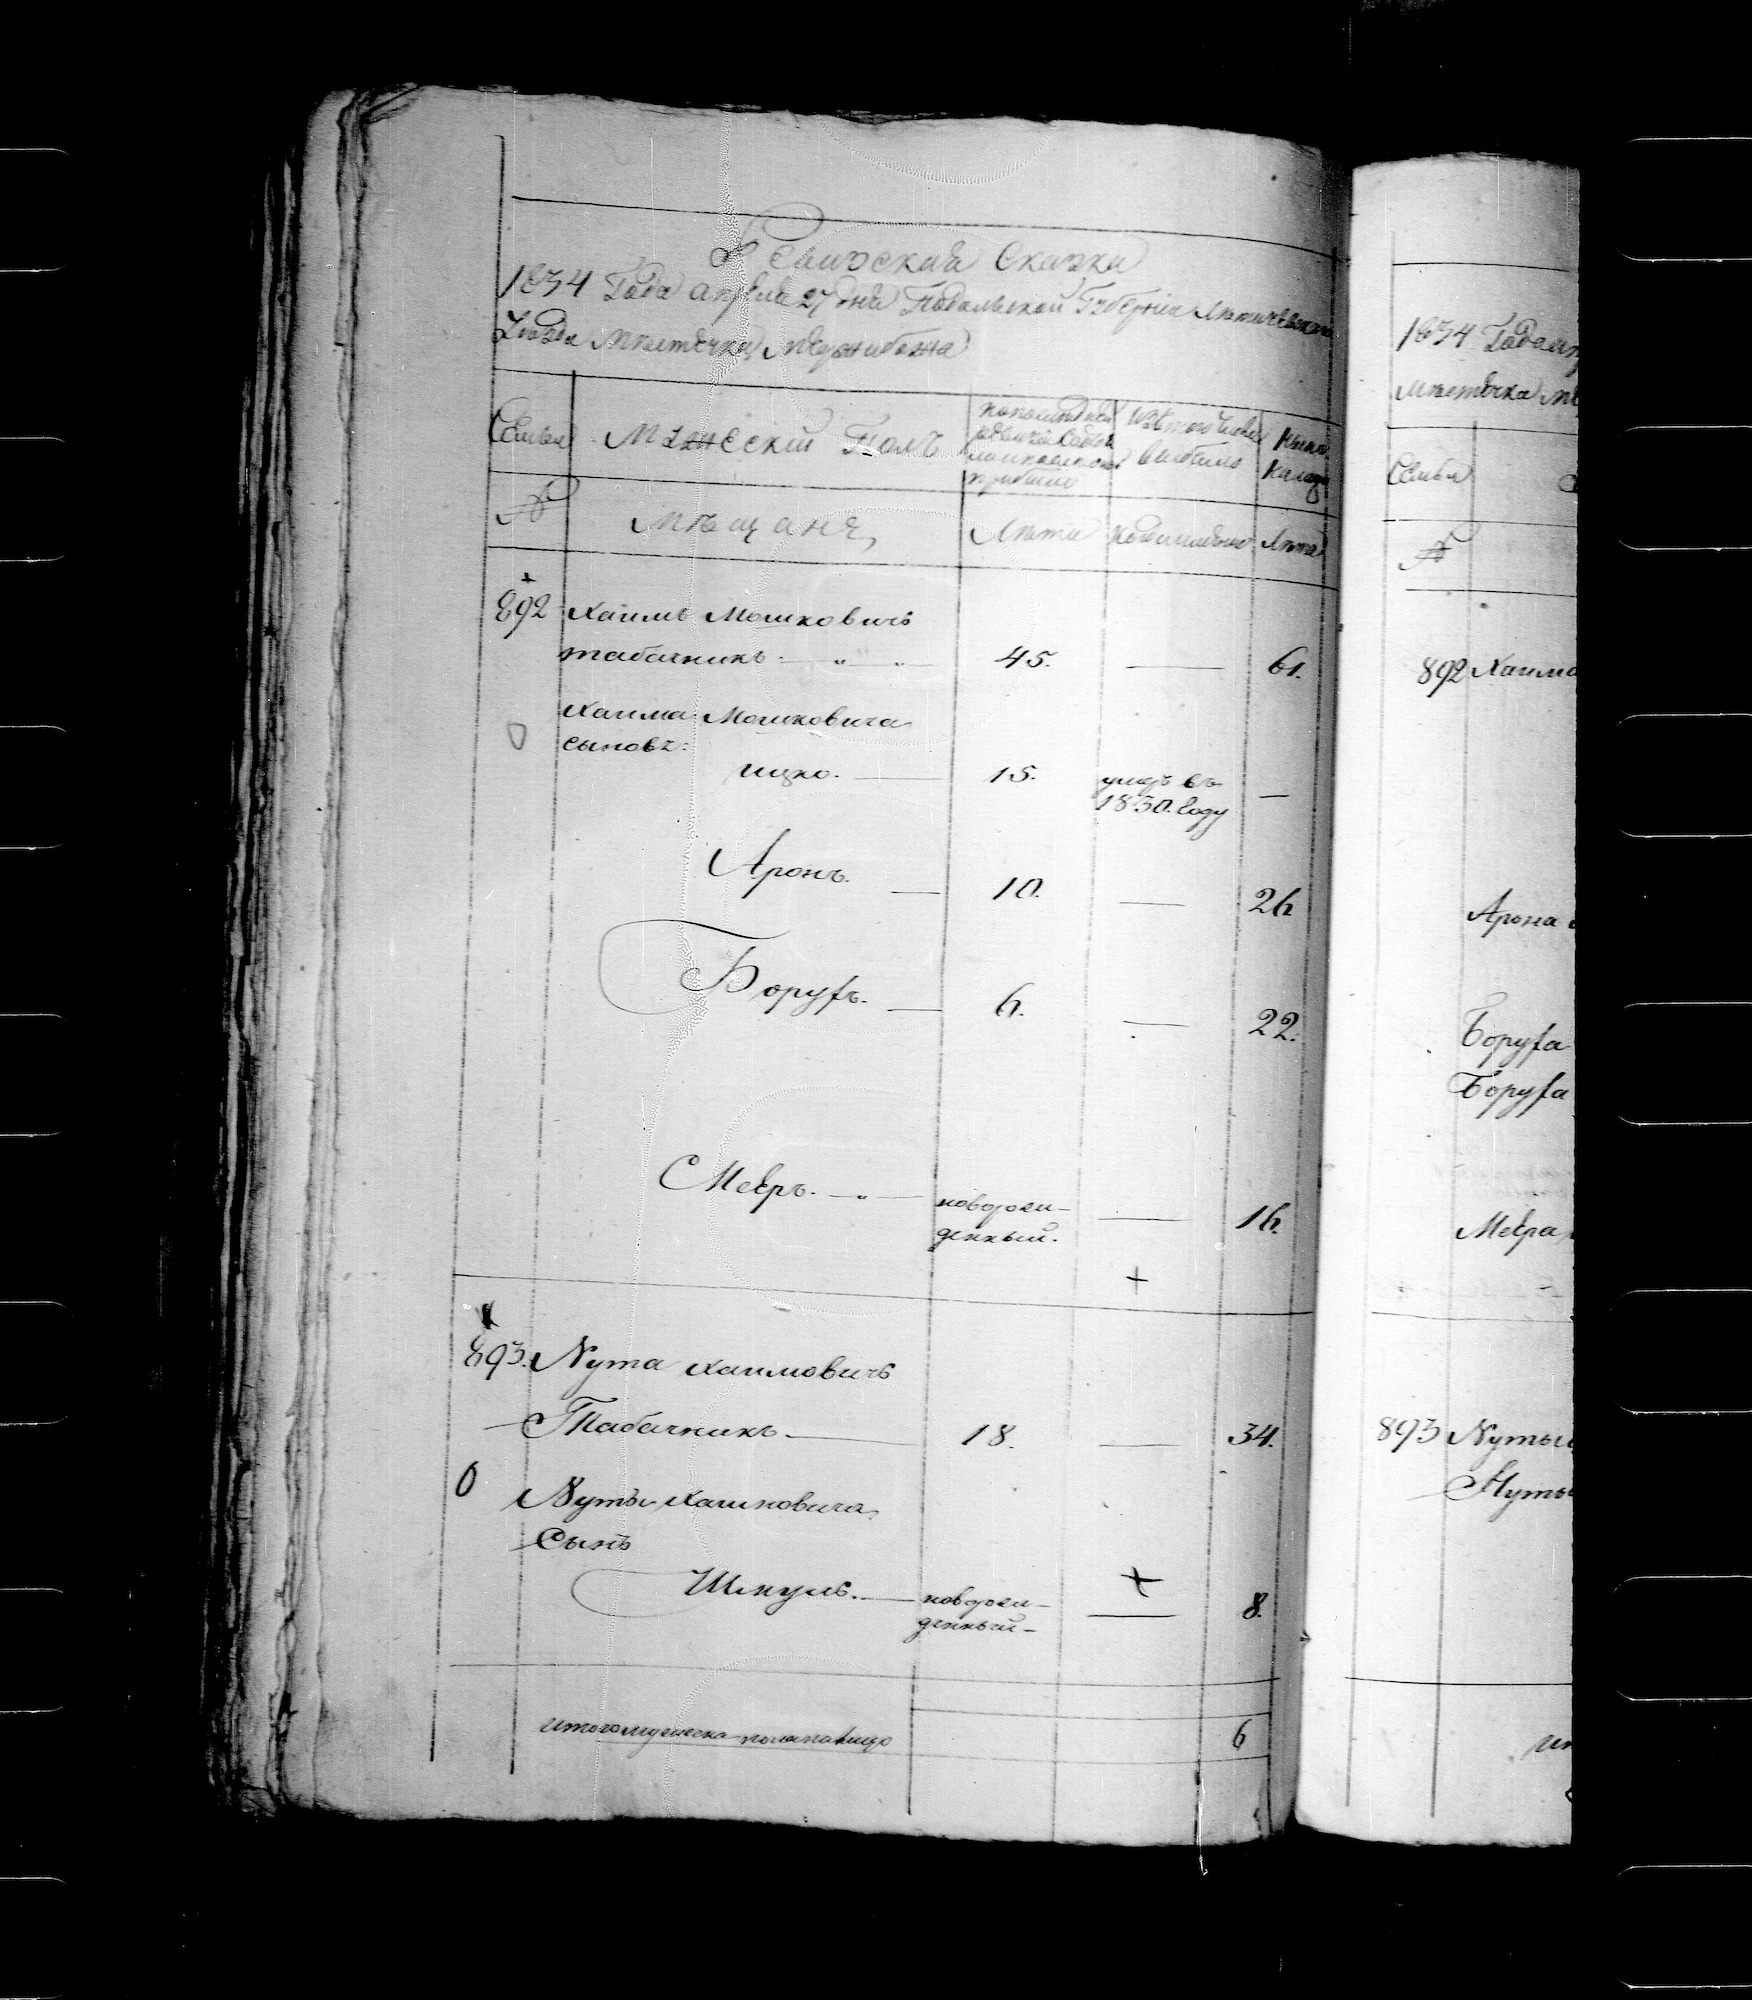 Ревизская Сказка
1834 Года апреля 27 дня Подольской Губернии Летичевского
Уезда Местечка Меджибожа
Семьи
Мужеский Полъ
прибыло
выбыло
Ныне
на лицо
№
Мещане
Лета
Когда именно
Лета
892 Хаимъ Мошковичъ
табачникъ 45. 61.
Хаима Мошковича
сыновъ:
ицко. 15.
1830. Году
Аронъ. 10. 26
Борухъ. 6. 22.
Мееръ. 16.
новорож-
денный.
893. Нута Хаимовичъ
Табачникъ 18. 34.
Нуты Хаимовича
Сынъ
Шмуль. 8.
новорож-
денный
итого мужеска пола налицо 6
1834 Года ап
местечка Ме
Семьи
№
892 Хаима
Арона
Боруха
Боруха
Меера
893 Нуты
Нуты